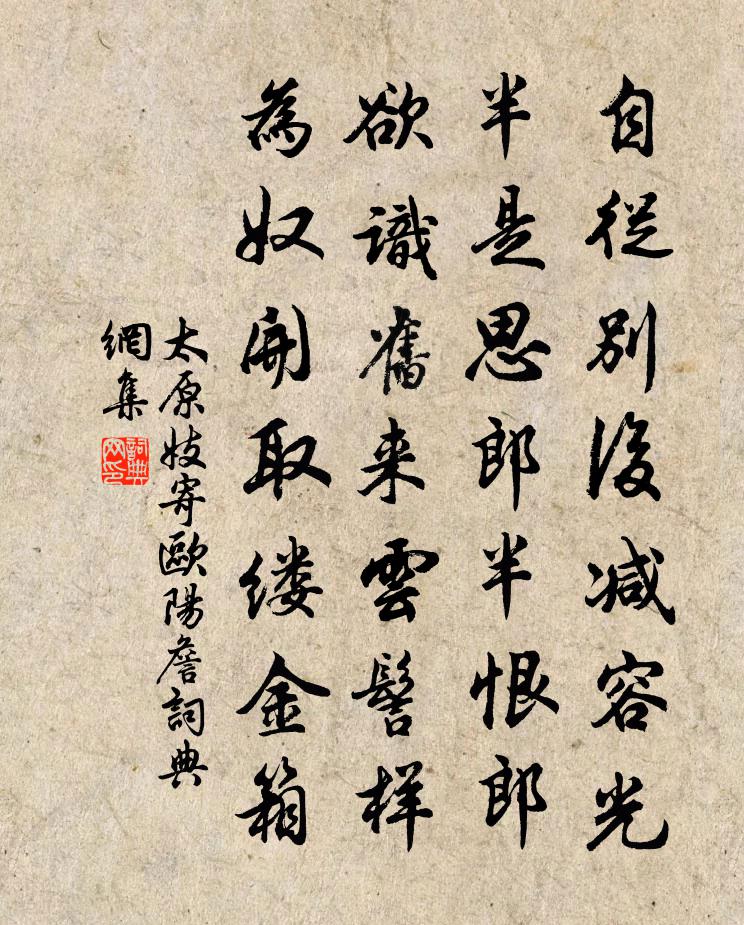 自從別後減容光
半是思郎半恨郎
欲識舊来雲髻樣
為奴開取缕金箱
太原妓寄歐陽詹詞典
網集
詞典网印